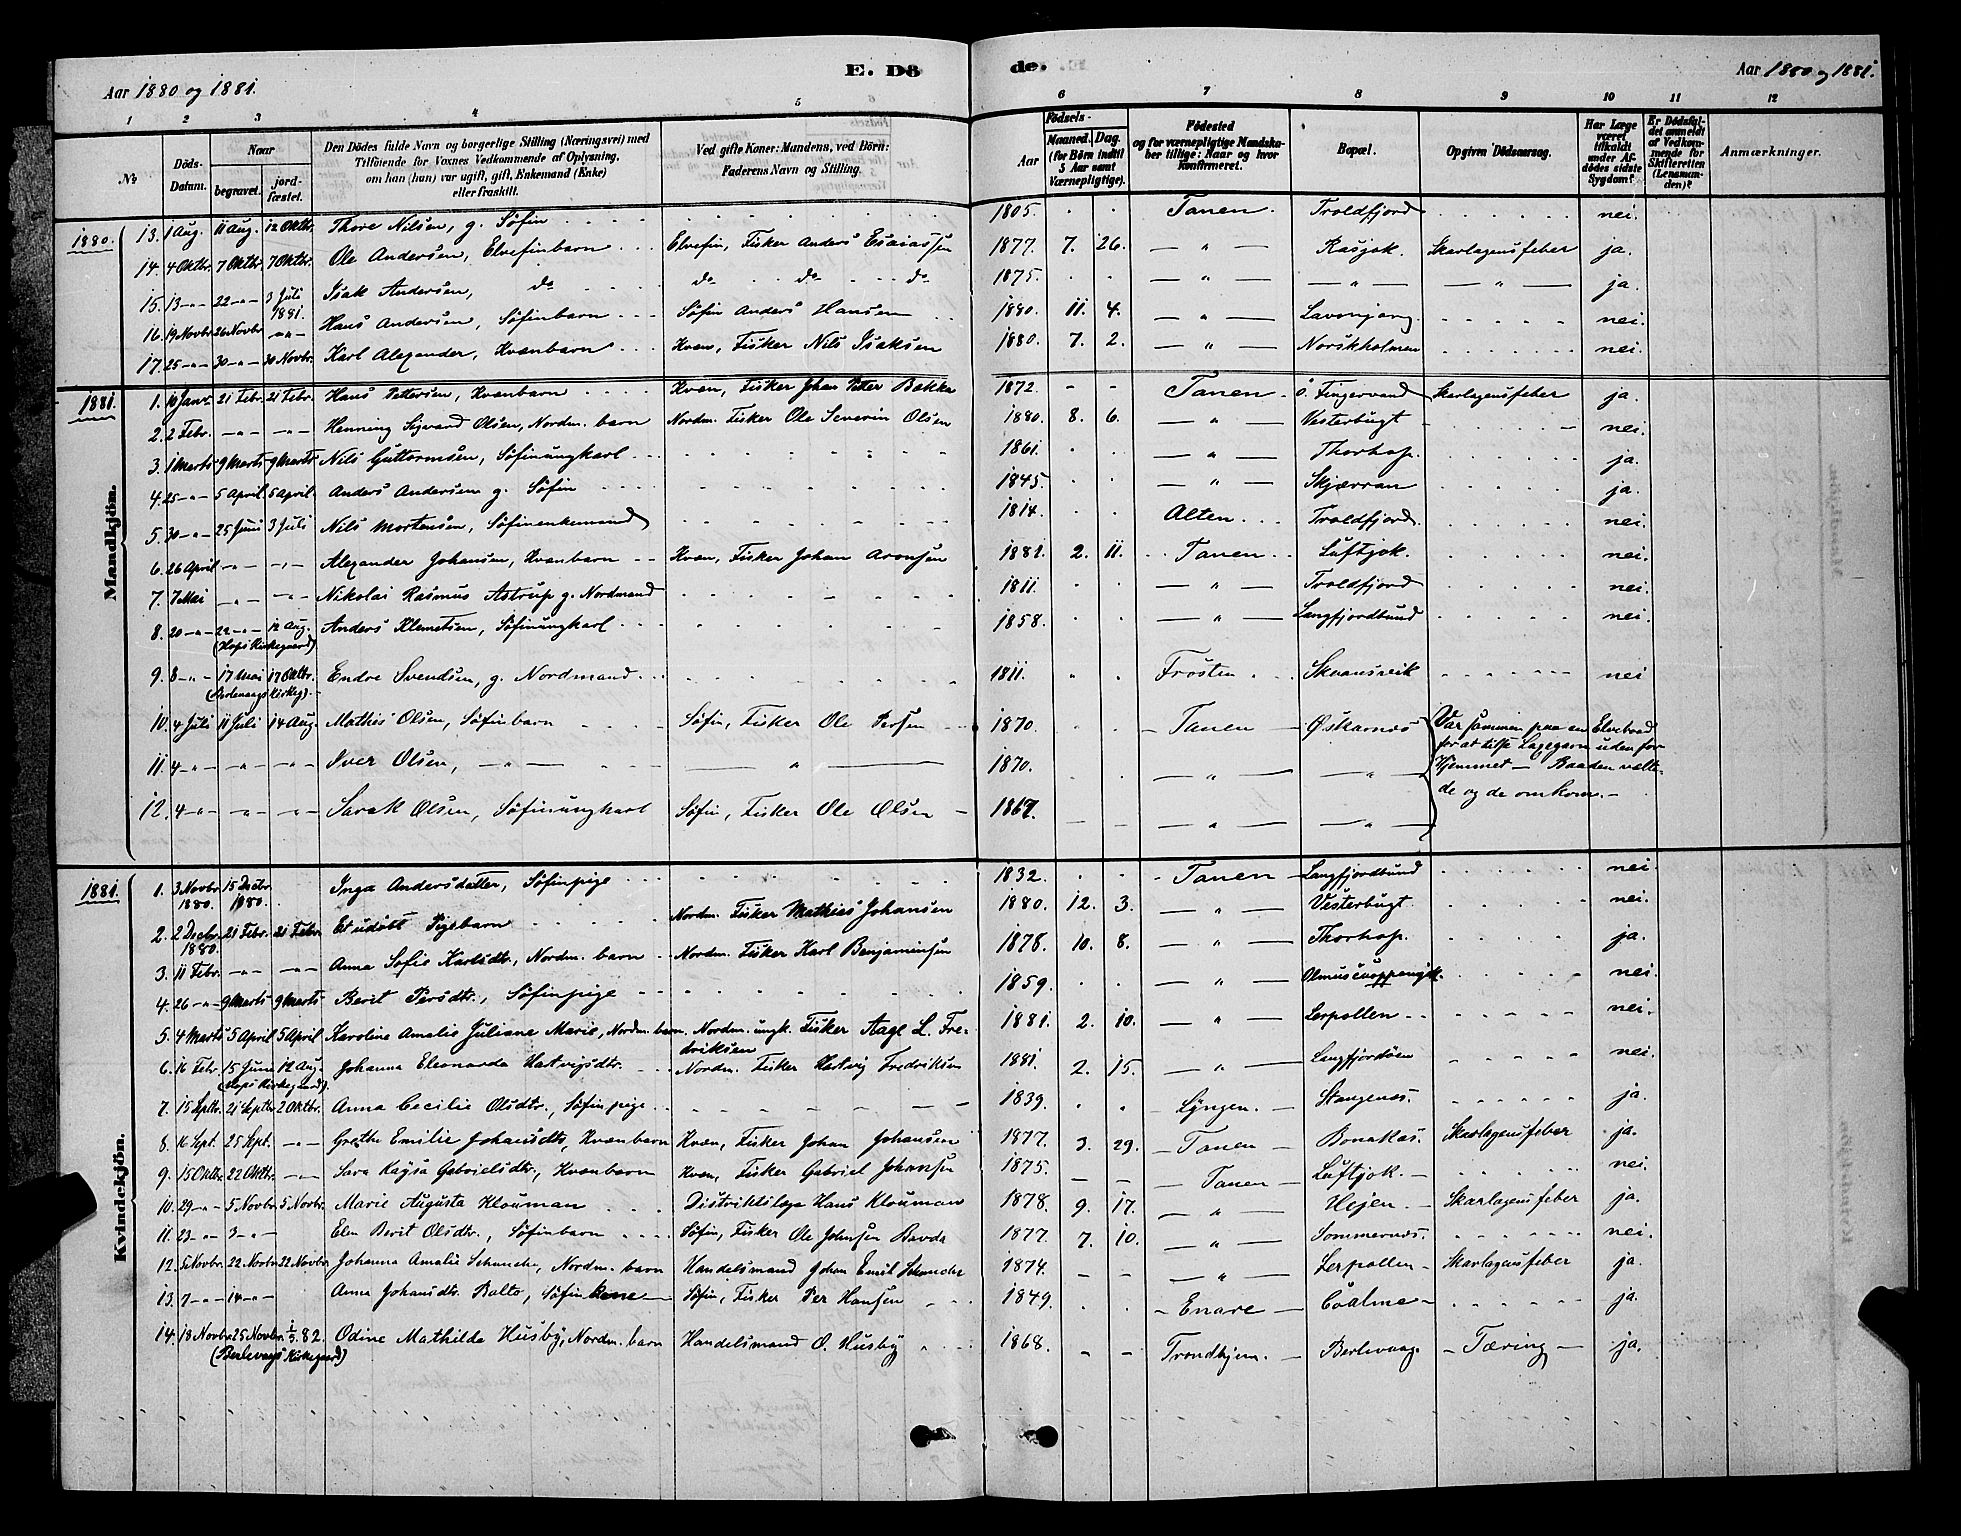 Aar 1880 og 1881.
E. Dö
de.
Aar 1880 og 1881.
1 2 3 4 5 6 7 8 9 10 11 12
No
Döds-Datum.
Naar
begravet.
jordfæstet.
Den Dödes fulde Navn og borgerlige Stilling (Næringsvei) med
Tilföiende for Voxnes Vedkommende af Oplysning,
om han (hun) var ugift, gift, Enkemand (Enke)
eller fraskilt.
Ved gifte Koner: Mandens, ved Börn:
Faderens Navn og Stilling.
Födsels-
Aar
Maaned. Dag.
(for Börn indtil
5 Aar samt
Værnepligtige).
Födested
og for værnepligtige Mandska-
ber tillige: Naar og hvor
konfirmeret.
Bopæl.
Opgiven Dödsaarsag.
Har Læge
været
tilkaldt
under Af-
dödes sidste
Sygdom?
Er Dödsfal-
det anmeldt
af Vedkom-
mende for
Skifteretten
(Lensman-
den)?
Anmærkninger.
Mandkjön.
1880.
13. 1 Aug. 11 Aug. 12 Oktbr. Thore Nilsen, g. Søfin 1805. Tanen. Troldfjord nei.
14. 4 Oktbr. 7 Oktbr. 7 Oktbr. Ole Andersen, Elvefinbarn Elvefin, Fisker Anders Esaiassen 1877. 7. 26. — " — Rasjok. Skarlagensfeber ja.
15. 13 -"- 22 -"- 3 Juli 1881. Isak Andersen, do do do do 1875. — " — — " — — " — ja.
16. 19 Novbr. 26 Novbr. -"- Hans Andersen, Søfinbarn Søfin Anders Hansen 1880. 11. 4. — " — Lavonjarg nei.
17. 25 -"- 30 -"- 30 Novbr. Karl Alexander, Kvænbarn Kvæn, Fisker Nils Isaksen 1880. 7. 2. — " — Norskholmen nei.
1881.
1. 10 Janr. 21 Febr. 21 Febr. Hans Pettersen, Kvænbarn Kvæn, Fisker Johan Peter Bakka 1872. - - Tanen Ö. Fingervand Skarlagensfeber ja.
2. 2 Febr. -"- -"- Henning Sigvard Olsen, Nordm. barn Nordm. Fisker Ole Severin Olsen 1880. 8. 6. — " — Vesterbugt nei.
3. 1 Marts 9 Marts 9 Marts Nils Guttormsen, Søfinungkarl 1861. — " — Thorhop. ja.
4. 25 -"- 5 April 5 April Anders Andersen g. Søfin 1845. — " — Skjærran ja.
5. 30 -"- 25 Juni 3 Juli Nils Mortensen, Søfinenkemand 1814. Alten Troldfjord nei.
6. 26 April -"- -"- Alexander Johansen, Kvænbarn Kvæn, Fisker Johan Aronsen 1881. 2. 11. Tanen Luftjok. nei.
7. 7 Mai -"- -"- Nikolai Rasmus Astrup g. Nordmand 1811. — " — Troldfjord nei.
8. 20 -"- 22 -"- 12 Aug. Anders Klemetsen, Søfinungkarl 1858. — " — Langfjordbund nei.
(Hops Kirkegaard)
9. 8 -"- 17 Mai 17 Oktbr. Endre Svendsen, g. Nordmand 1811. Frosten Skaansvik nei
(Berlevaags Kirkeg.)
10. 4 Juli 11 Juli 14 Aug. Mathis Olsen, Søfinbarn Søfin, Fisker Ole Persen 1870. Tanen Østkarnæs
11. 4 -"- -"- -"- Iver Olsen, — " — — " — 1870. — " — — " —
12. 4 -"- -"- -"- Sarak Olsen, Søfinungkarl Søfin, Fisker Ole Olsen 1867. — " — — " —
Var sammen paa en Elvebaad
for at tilse Laxegarn uden for
Hjemmet — Baaden vælte-
de og de omkom.
Kvindekjön.
1881.
1. 3 Novbr. 1880. 15 Decbr. 1880. Inga Andersdatter, Søfinpige 1832. Tanen Langfjordbund nei.
2. 2 Decbr. 1880. 21 Febr. 21 Febr. Et udöbt Pigebarn Nordm. Fisker Mathias Johansen 1880. 12. 3. — " — Vesterbugt. nei.
3. 11 Febr. -"- -"- Anna Sofie Karlsdtr., Nordm. barn Nordm. Fisker Karl Benjaminsen 1878. 10. 8. — " — Thorhop. ja.
4. 26 -"- 9 Marts 9 Marts Berit Persdtr., Søfinpige 1859. — " — nei.
5. 4 Marts 5 April 5 April Karoline Amalie Juliane Marie, Nordm. barn. Nordm. ungk. Fisker Aage L. Fre-
driksen 1881. 2. 10. — " — Lerpollen nei.
6. 16 Febr. 15 Juni 12 Aug. Johanna Eleonarda Hartvigsdtr. Nordm. Fisker Hartvig Fredriksen 1881. 2. 15. — " — Langfjordöen nei.
(Hops Kirkegaard).
7. 15 Septbr. 21 Septbr. 2 Oktbr. Anna Cecilie Olsdtr., Søfinpige 1839. Lyngen. Stangenæs. ja.
8. 16 Sept. 25 Sept. -"- Grethe Emilie Johansdtr., Kvænbarn Kvæn, Fisker Johan Johansen 1877. 3. 29. Tanen Bonakas. Skarlagensfeber ja.
9. 15 Oktbr. 22 Oktbr. -"- Sara Kaysa Gabrielsdtr., Kvænbarn Kvæn, Fisker Gabriel Johansen 1875. Tanen Luftjok. nei.
10. 29 -"- 5 Novbr. 5 Novbr. Marie Augusta Klouman Distriktslæge Hans Klouman 1878. 9. 17. — " — Hejen. Skarlagensfeber ja.
11. 23 -"- 3 -"- Elen Berit Olsdtr., Søfinbarn Søfin, Fisker Ole Johnsen Bavda 1877. 7. 10. — " — Sommernæs. nei.
12. 5 Novbr. 22 Novbr. 22 Novbr. Johanna Amalie Schanche, Nordm. barn Handelsmand Johan Emil Schanche 1874. — " — Lerpollen Skarlagensfeber ja.
13. 7 -"- 14 -"- Anna Johansdtr. Balto, Søfin kone Søfin, Fisker Per Hansen 1849. Enare Coalme ja.
14. 18 Novbr. 25 Novbr. 1/5 82. Odine Mathilda Husby, Nordm. barn Handelsmand O. Husby 1868. Trondhjem. Berlevaag Tæring ja.
(Berlevaags Kirkegaard)